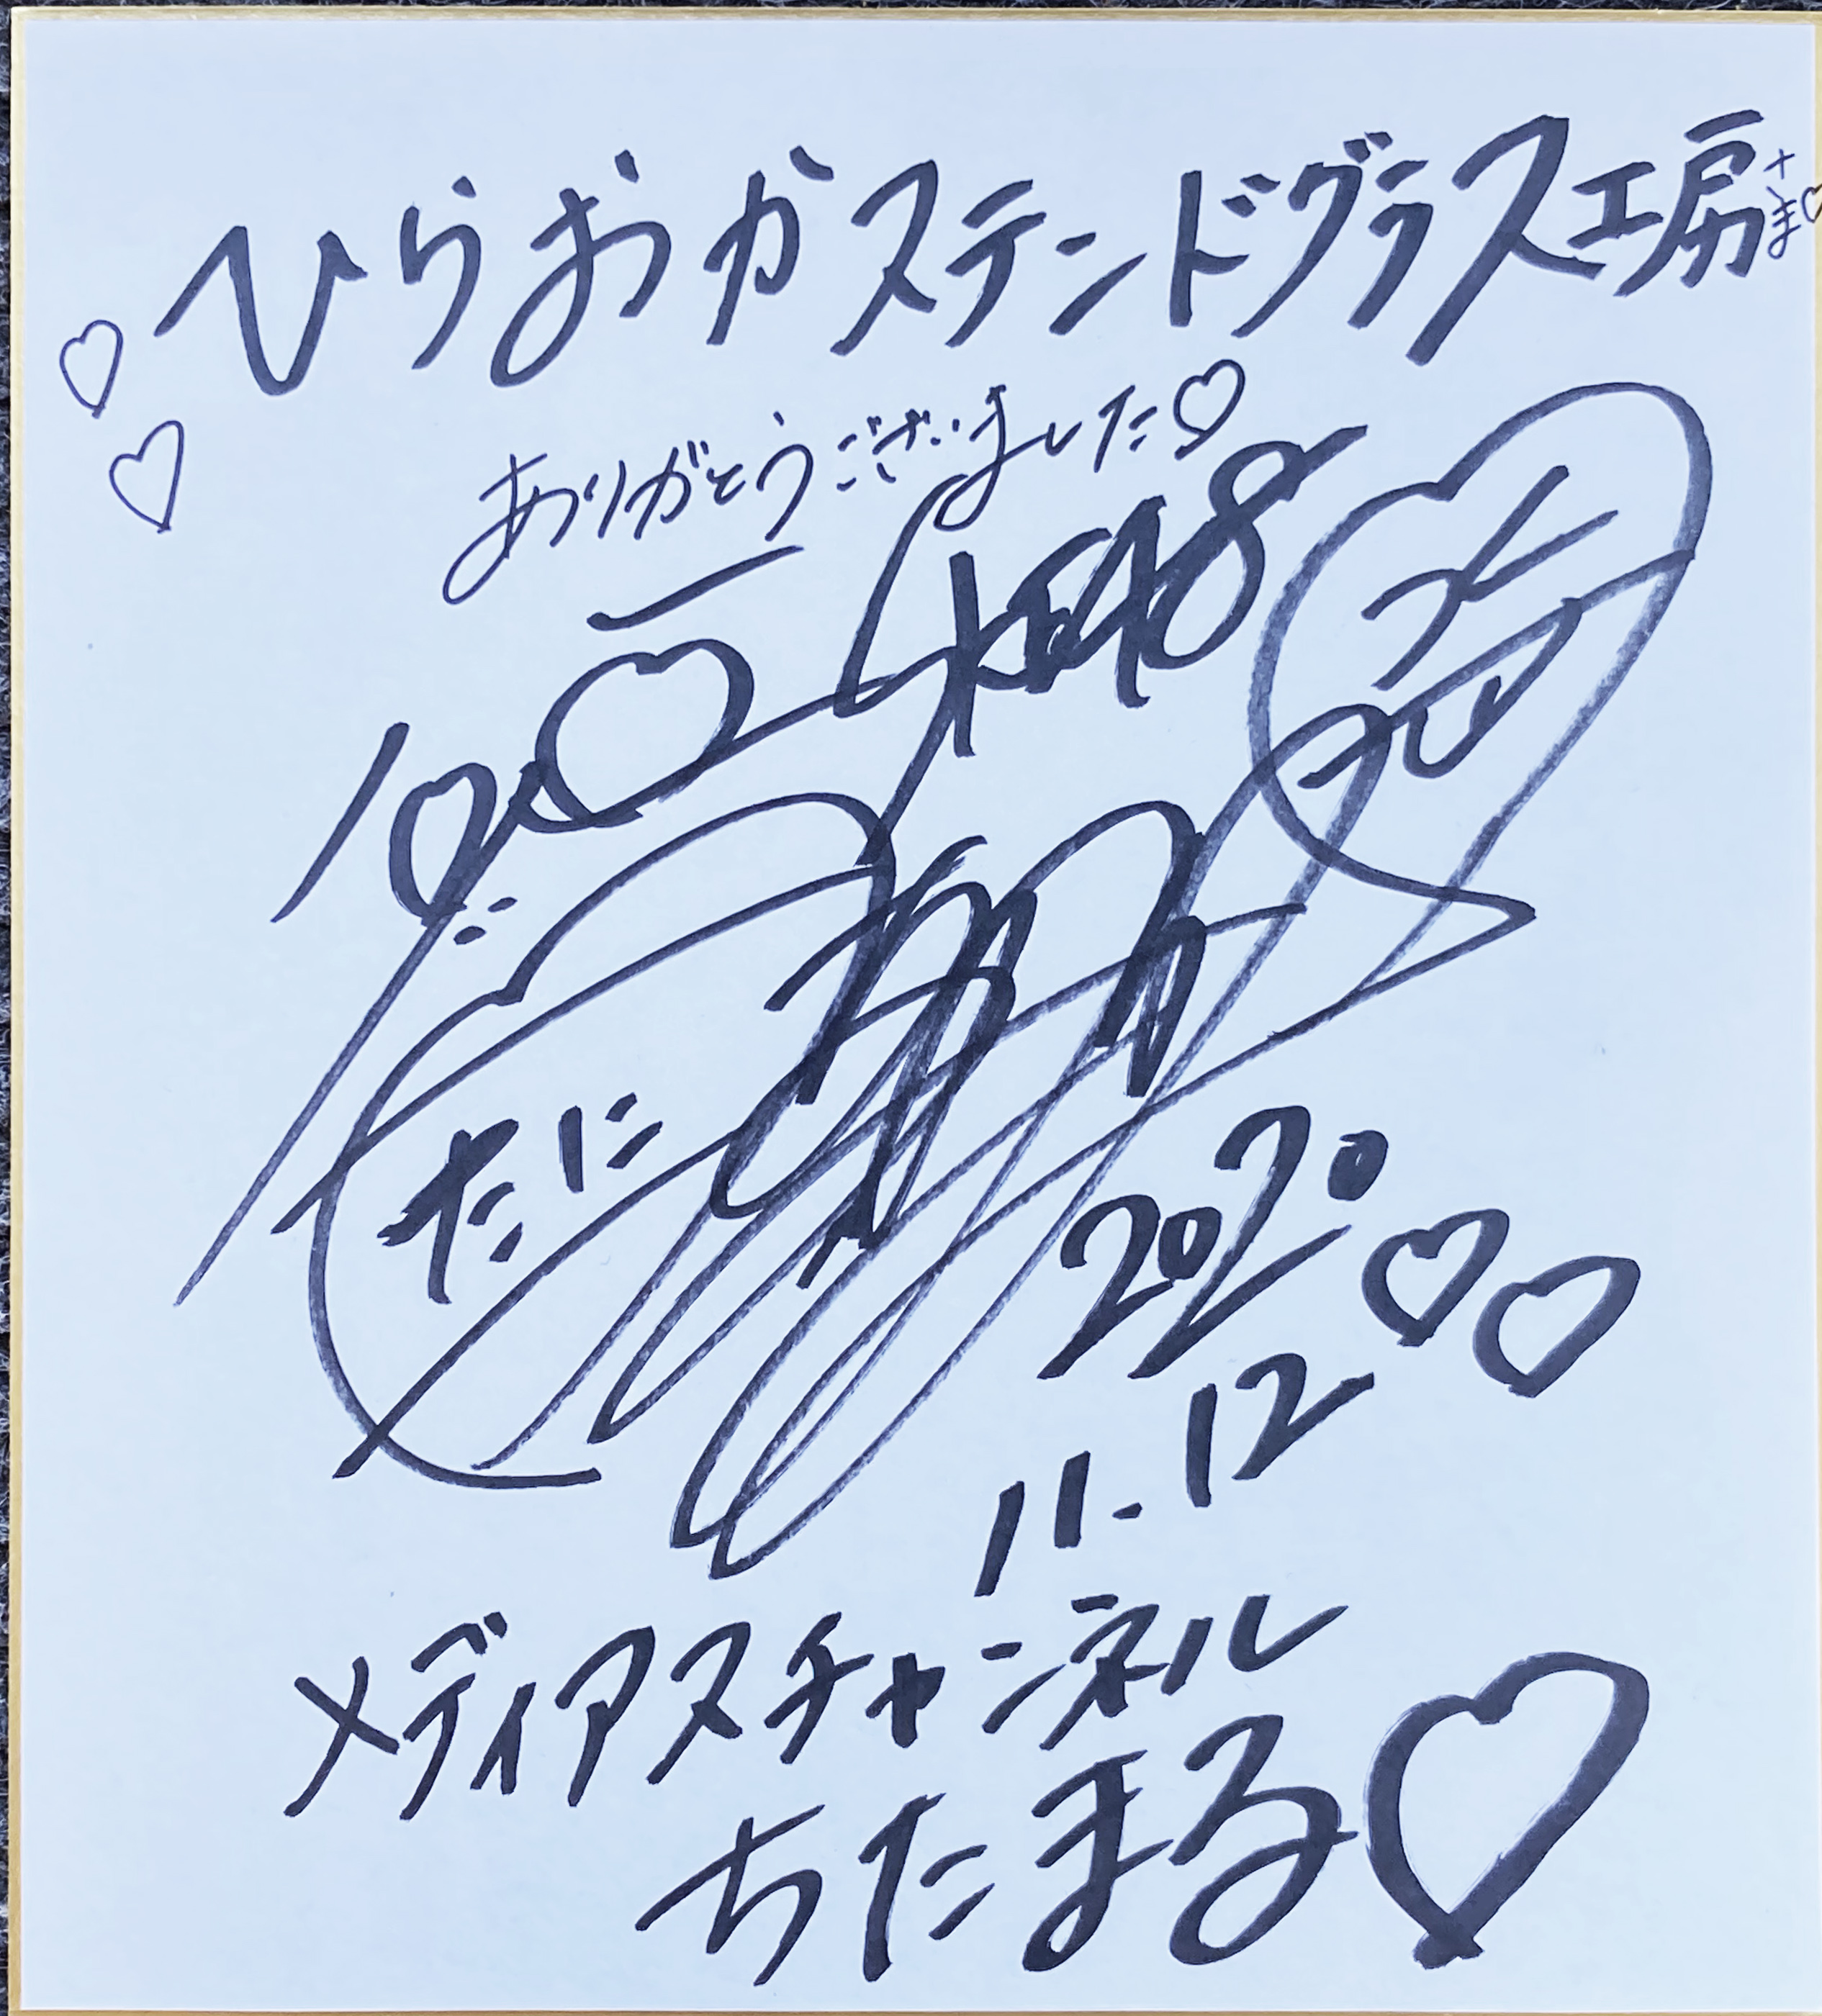 ひらおかステンドグラス工房さま♡
ありがとうございました♡
SKE48
たに
2020
11.12
メディアスチャンネル
ちたまる♡